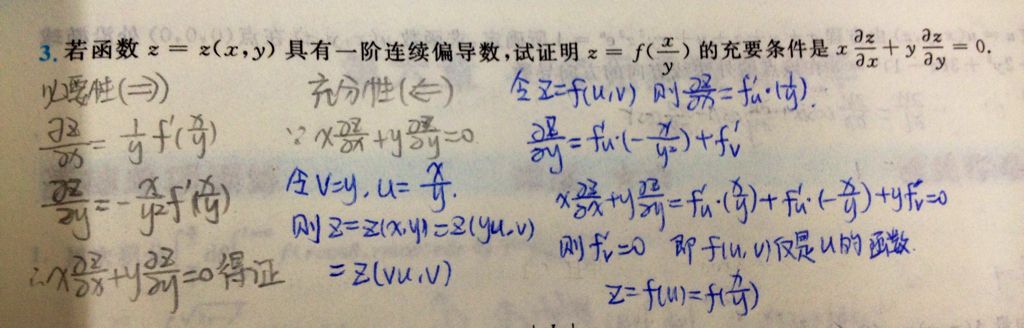 3. 若函数 z = z(x, y) 具有一阶连续偏导数, 试证明 z = f(x/y) 的充要条件是 x ∂z/∂x + y ∂z/∂y = 0.
必要性(⇒)
∂z/∂x = 1/y f'(x/y)
∂z/∂y = -x/y² f'(x/y)
∴ x ∂z/∂x + y ∂z/∂y = 0 得证
充分性(⇐)
∵ x ∂z/∂x + y ∂z/∂y = 0
令 v=y, u= x/y.
则 z = z(x, y) = z(yu, v)
= z(vu, v)
令 z = f(u, v) 则 ∂z/∂x = f'u · (1/y).
∂z/∂y = f'u · (-x/y²) + f'v
x ∂z/∂x + y ∂z/∂y = f'u · (x/y) + f'u · (-x/y) + y f'v = 0
则 f'v = 0 即 f(u, v) 仅是 u 的函数.
z = f(u) = f(x/y)